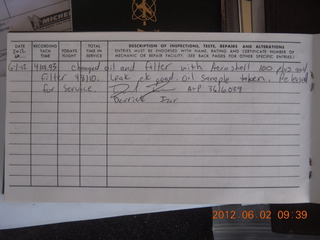 MICHELIN
DATE
RECORDING
TACH
TIME
TODAY'S
FLIGHT
TOTAL
TIME IN
SERVICE
DESCRIPTION OF INSPECTIONS, TESTS, REPAIRS AND ALTERATIONS
ENTRIES MUST BE ENDORSED WITH NAME, RATING AND CERTIFICATE NUMBER OF
MECHANIC OR REPAIR FACILITY. (SEE BACK PAGES FOR OTHER SPECIFIC ENTRIES.)
changed oil and filter with Aeroshell 100 plus and
filter 48110. Leak ck good. oil sample taken. Released
for service. A+P
Derrick
2012.06.02 09:39